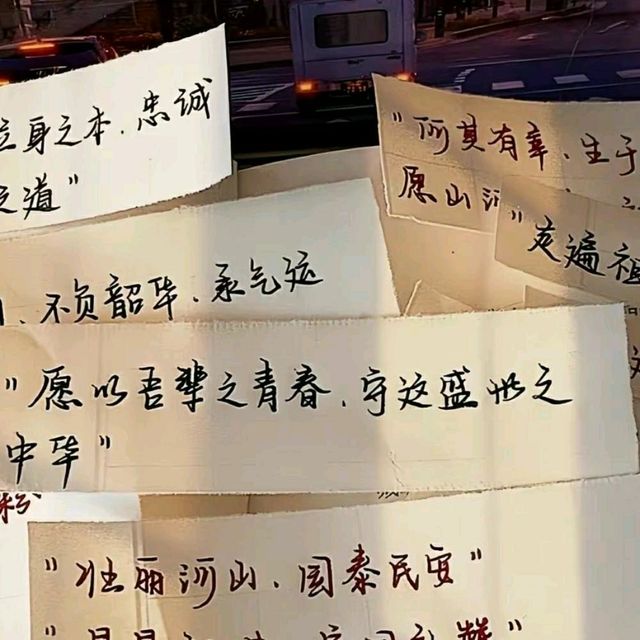 立身之本.忠诚
之道"
"何其有幸、生于
愿山河
"走遍祖
、不负韶华、承气运
"愿以吾辈之青春、守这盛世之
中华"
"壮丽河山、国泰民安"